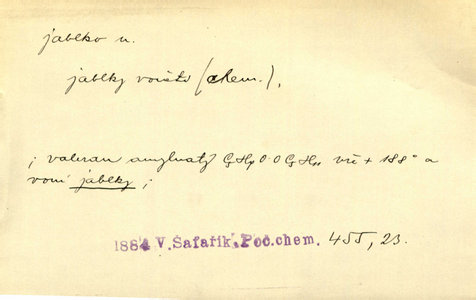 jablko n.
jablky voněti (chem.),
; valeran amylnatý C5H9O.OC5H11 vře + 188° a
voní jablky ;
1884 V. Šafařík, Poč. chem. 455, 23.